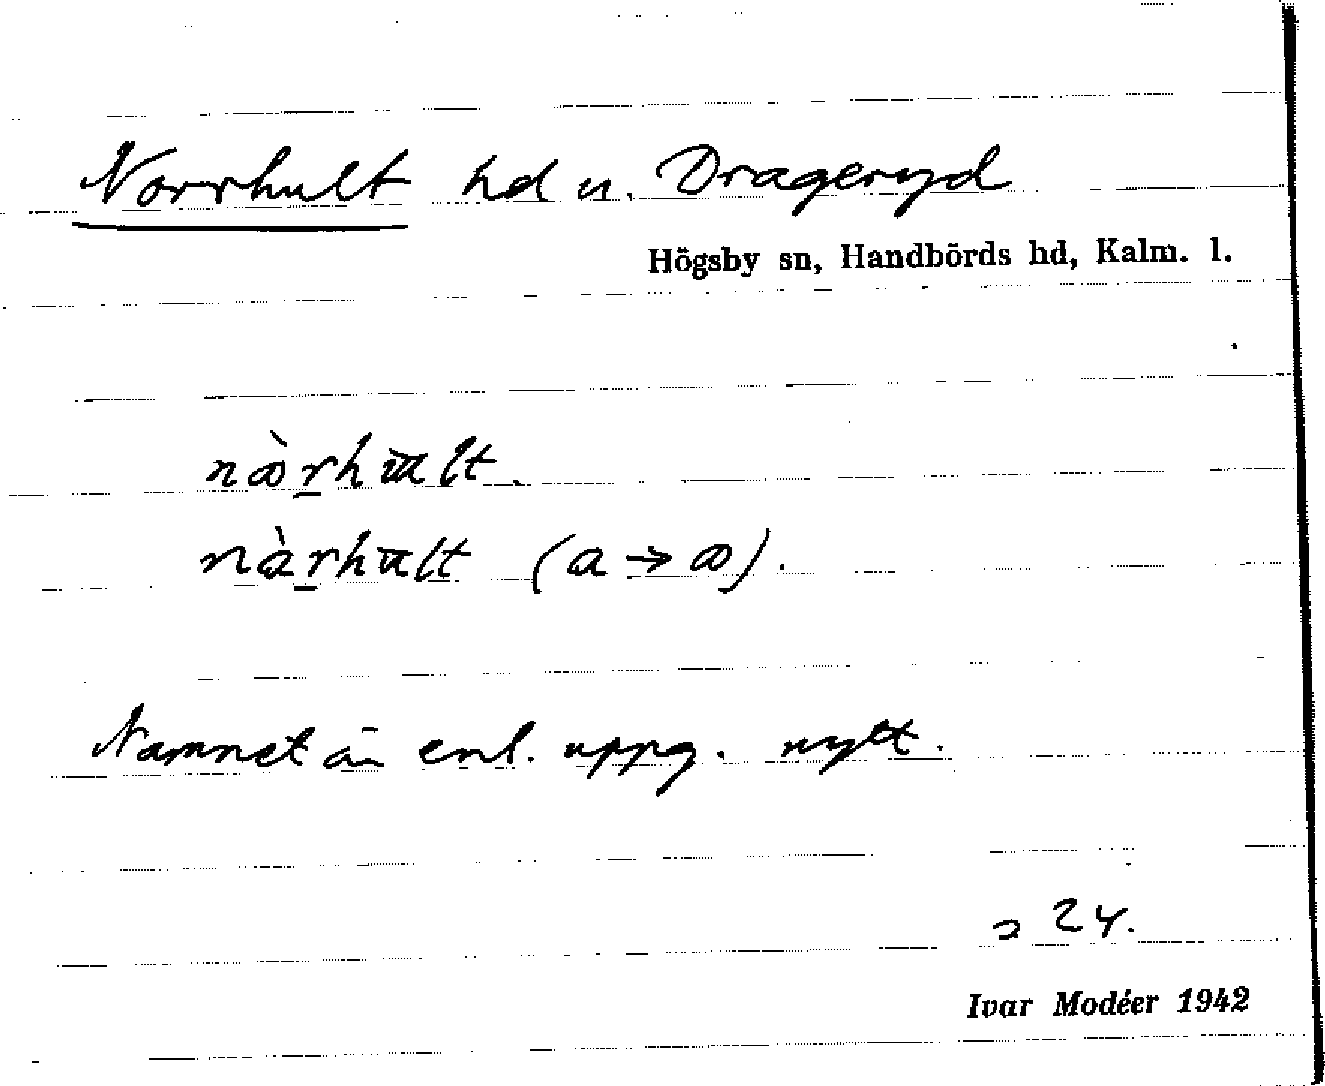 Norrhult hd u. Drageryd
Högsby sn, Handbörds hd, Kalm. l.
(a → ꝏ).
Namnet är enl. uppg. nytt.
24.
Ivar Modéer 1942